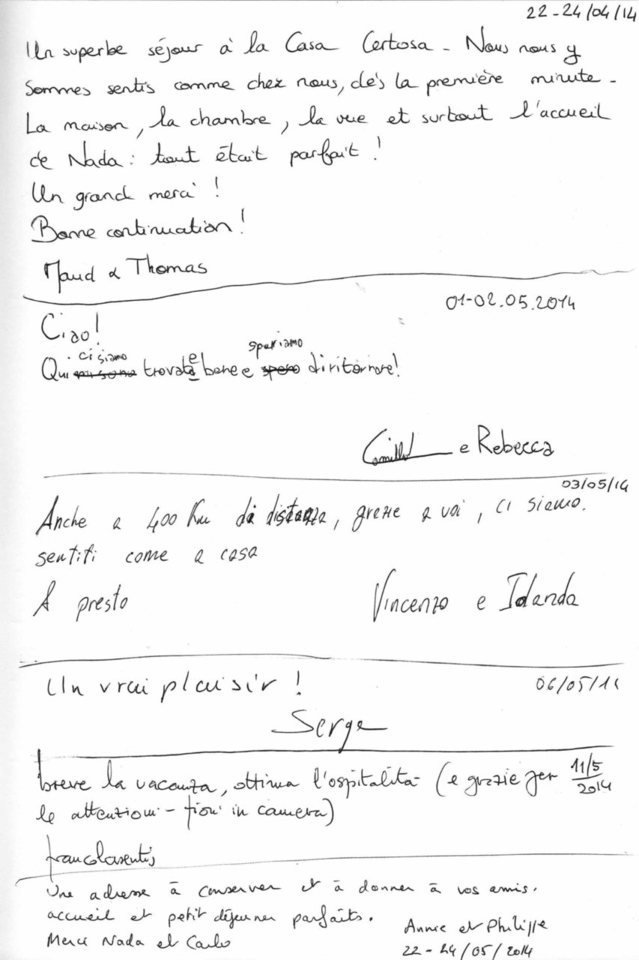 22-24/04/14
Un superbe séjour à la Casa Certosa - Nous nous y
sommes sentis comme chez nous, dès la première minute -
La maison, la chambre, la vue et surtout l'accueil
de Nada : tout était parfait !
Un grand merci !
Bonne continuation !
Maud & Thomas
01-02.05.2014
Ciao!
ci siamo e speriamo
Qui trovate bene e spero di ritornare!
Camilla e Rebecca
03/05/14
Anche a 400 Km di distanza, grazie a voi, ci siamo.
sentiti come a casa
A presto
Vincenzo e Iolanda
Un vrai plaisir !
06/05/14
Serge
breve la vacanza, ottima l'ospitalità (e grazie per
11/5
2014
le attenzioni - fiori in camera)
Une adresse à conserver et à donner à vos amis.
accueil et petit déjeuner parfaits.
Merci Nada et Carlo
Annie et Philippe
22-24/05/2014